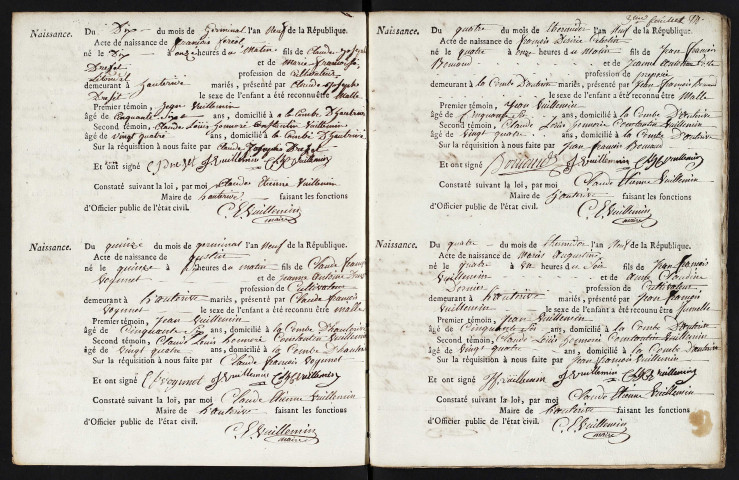 Naissance. Du Dix du mois de germinal l'an neuf de la République.
Acte de naissance de françois
né le Dix à onze heures du Matin fils de Claude joseph
Drezet et de Marie françoise
profession de cultivateur
demeurant à hauterive mariés, présenté par Claude joseph
Drezet le sexe de l'enfant a été reconnu être Malle
Premier témoin, Jean Vuillemin
âgé de Cinquante Six ans, domicilié à la Combe D'hauterive
Second témoin, Claude Louis Constantin Vuillemin
âgé de vingt quatre ans, domicilié à la Combe D'hauterive
Sur la réquisition à nous faite par Claude Joseph Drezet
Et ont signé C J Drezet J Vuillemin Vuillemin
Constaté suivant la loi, par moi Claude Etienne Vuillemin
Maire de hauterive faisant les fonctions
d'Officier public de l'état civil. C. E. Vuillemin
maire
Naissance. Du quinze du mois de germinal l'an neuf de la République.
Acte de naissance de
né le quinze à heures du matin fils de Claude françois
Voynnet et de jeanne antoine
profession de Cultivateur
demeurant à hauterive mariés, présenté par Claude françois
Voynnet le sexe de l'enfant a été reconnu être malle
Premier témoin, Jean Vuillemin
âgé de Cinquante Six ans, domicilié à la Combe D'hauterive
Second témoin, Claude Louis Constantin Vuillemin
âgé de vingt quatre ans, domicilié à la Combe D'hauterive
Sur la réquisition à nous faite par Claude françois Voynnet
Et ont signé Voynnet J Vuillemin Vuillemin
Constaté suivant la loi, par moi Claude Etienne Vuillemin
Maire de hauterive faisant les fonctions
d'Officier public de l'état civil. C. E. Vuillemin
maire
feuillet
Naissance. Du quatre du mois de thermidor l'an neuf de la République.
Acte de naissance de françois Désiré Célestin
né le quatre à onze heures du matin fils de Jean françois
Bonard et de Jeanne antoine
profession de
demeurant à la Combe D'hauterive mariés, présenté par Jean françois Bonard
le sexe de l'enfant a été reconnu être Malle
Premier témoin, Jean Vuillemin
âgé de Cinquante Six ans, domicilié à la Combe D'hauterive
Second témoin, Claude Louis Constantin Vuillemin
âgé de vingt quatre ans, domicilié à la Combe D'hauterive
Sur la réquisition à nous faite par Jean françois Bonard
Et ont signé J Vuillemin Vuillemin
Constaté suivant la loi, par moi Claude Etienne Vuillemin
Maire de hauterive faisant les fonctions
d'Officier public de l'état civil. C. E. Vuillemin
maire
Naissance. Du quatre du mois de thermidor l'an neuf de la République.
Acte de naissance de Marie Augustine
né le quatre à Six heures du Soir fils de Jean françois
Vuillemin et de Claudine
profession de Cultivateur
demeurant à hauterive mariés, présenté par Jean françois
Vuillemin le sexe de l'enfant a été reconnu être femelle
Premier témoin, Jean Vuillemin
âgé de Cinquante Six ans, domicilié à la Combe D'hauterive
Second témoin, Claude Louis Constantin Vuillemin
âgé de vingt quatre ans, domicilié à la Combe D'hauterive
Sur la réquisition à nous faite par Jean françois Vuillemin
Et ont signé Vuillemin J Vuillemin Vuillemin
Constaté suivant la loi, par moi Claude Etienne Vuillemin
Maire de hauterive faisant les fonctions
d'Officier public de l'état civil. C. E. Vuillemin
maire